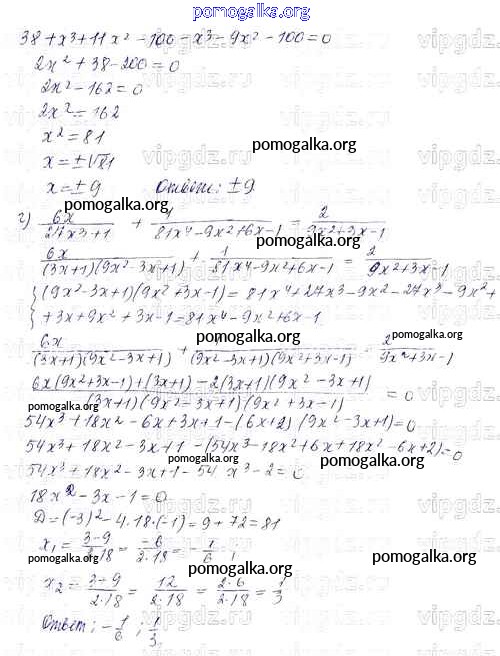 pomogalka.org
38+x³+11x²-100-x³-9x²-100=0
2x²+38-200=0
2x²-162=0
2x²=162
x²=81
x=±√81
x=±9 Ответ: ±9
pomogalka.org
г) 6x/(27x³+1) + 1/(81x⁴-9x²+6x-1) = 2/(9x²+3x-1)
6x/((3x+1)(9x²-3x+1)) + 1/(81x⁴-9x²+6x-1) = 2/(9x²+3x-1)
{(9x²-3x+1)(9x²+3x-1)=81x⁴+27x³-9x²-27x³-9x²+
+3x+9x²+3x-1=81x⁴-9x²+6x-1
pomogalka.org
6x/((3x+1)(9x²-3x+1)) + 1/((9x²-3x+1)(9x²+3x-1)) = 2/(9x²+3x-1)
(6x(9x²+3x-1)+(3x+1)-2(3x+1)(9x²-3x+1))/((3x+1)(9x²-3x+1)(9x²+3x-1)) = 0
pomogalka.org
54x³+18x²-6x+3x+1-(6x+2)(9x²-3x+1)=0
54x³+18x²-3x+1-(54x³-18x²+6x+18x²-6x+2)=0
pomogalka.org
54x³+18x²-3x+1-54x³-2=0
18x²-3x-1=0
D=(-3)²-4.18.(-1)=9+72=81
x₁=(3-9)/(2.18)=-6/(2.18)=-1/6;
pomogalka.org
x₂=(3-9)/(2.18)=12/(2.18)=(2.6)/(2.18)=1/3
Ответ: -1/6; 1/3.
pomogalka.org